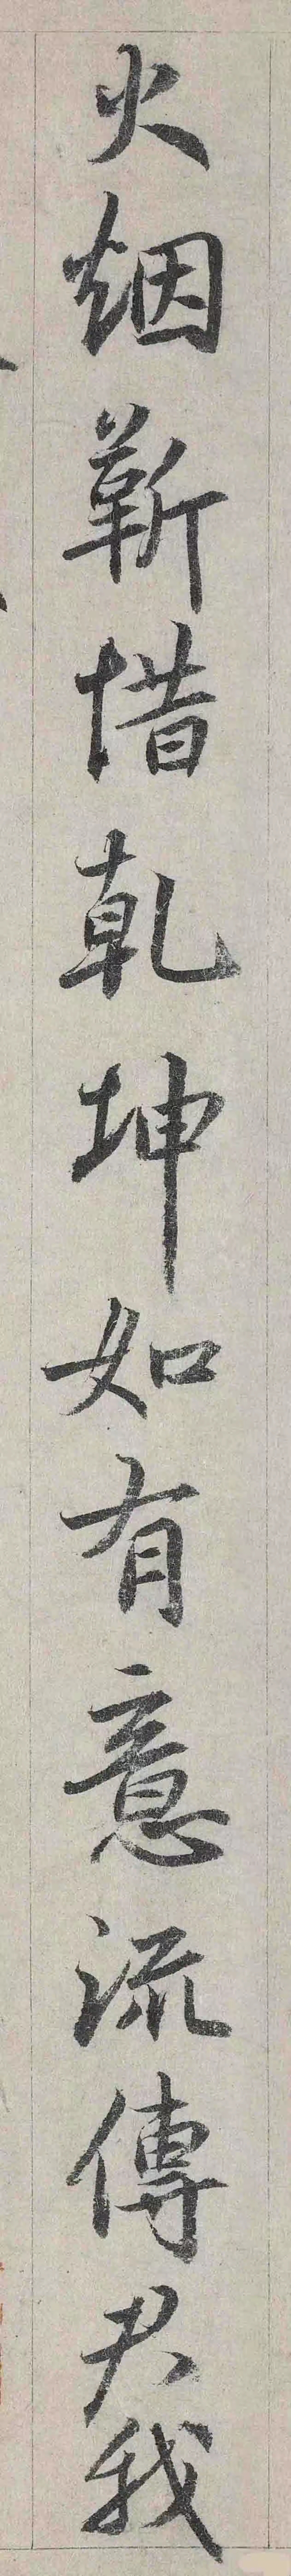 火烟靳惜乾坤如有意流傳尹我